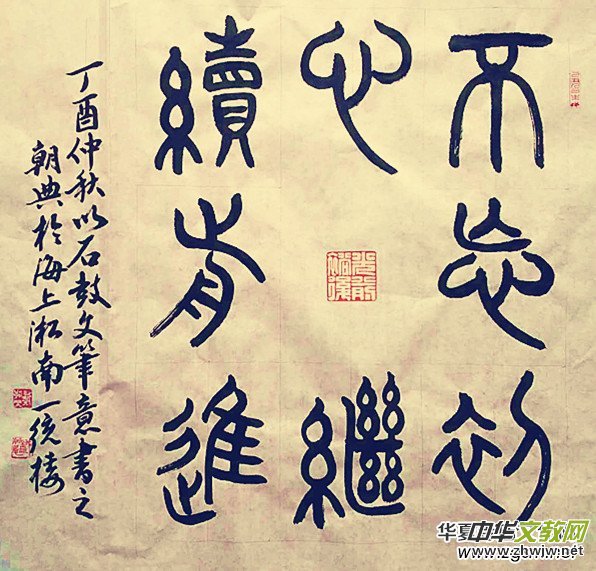 不忘初
心繼
續前進
丁酉仲秋以石鼓文筆意書之
朝典於海上淞南一樓
华夏
中华文教网
www.zhwjw.net